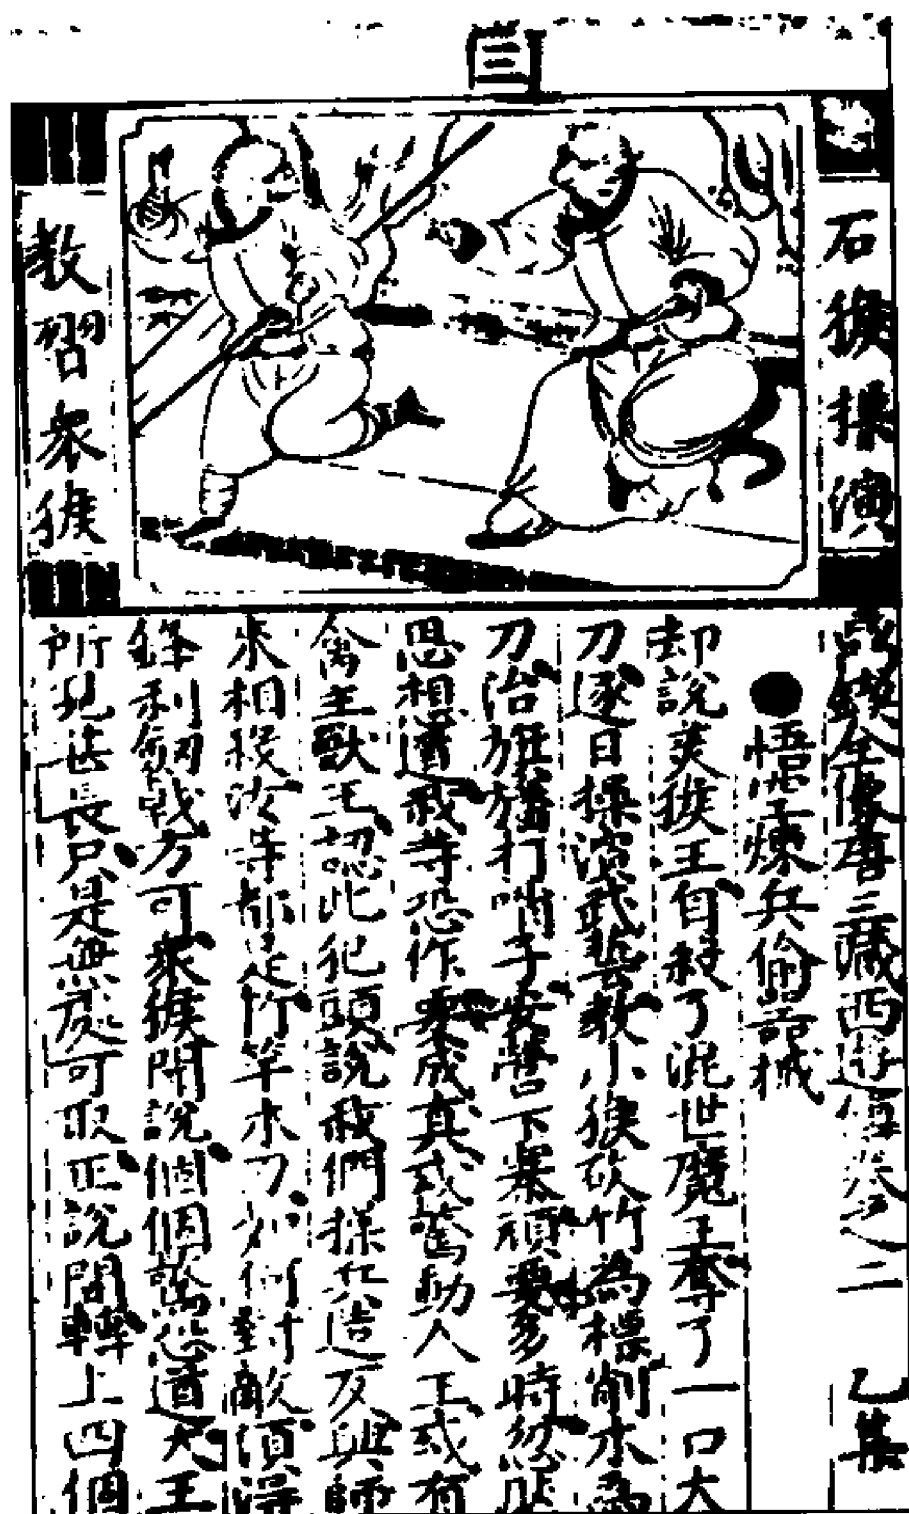 三
石猴操演
教習众猴
鼎鍥全像唐三藏西遊傳卷之二 乙集
●悟空煉兵偷器械
却說美猴王自殺了混世魔王奪了一口大
刀逐日操演武藝教小猴砍竹為標削木為
刀治旌旛打哨子安營下寨頑耍多時忽然
思想道我等恐作耍成真或驚動人王或有
禽主獸王認此犯頭說我們操兵造反興師
來相殺汝等都是竹竿木刀如何對敵須得
鋒利劍戟方可衆猴聞說個個驚恐道大王
所見甚長只是無處可取正說間轉上四個